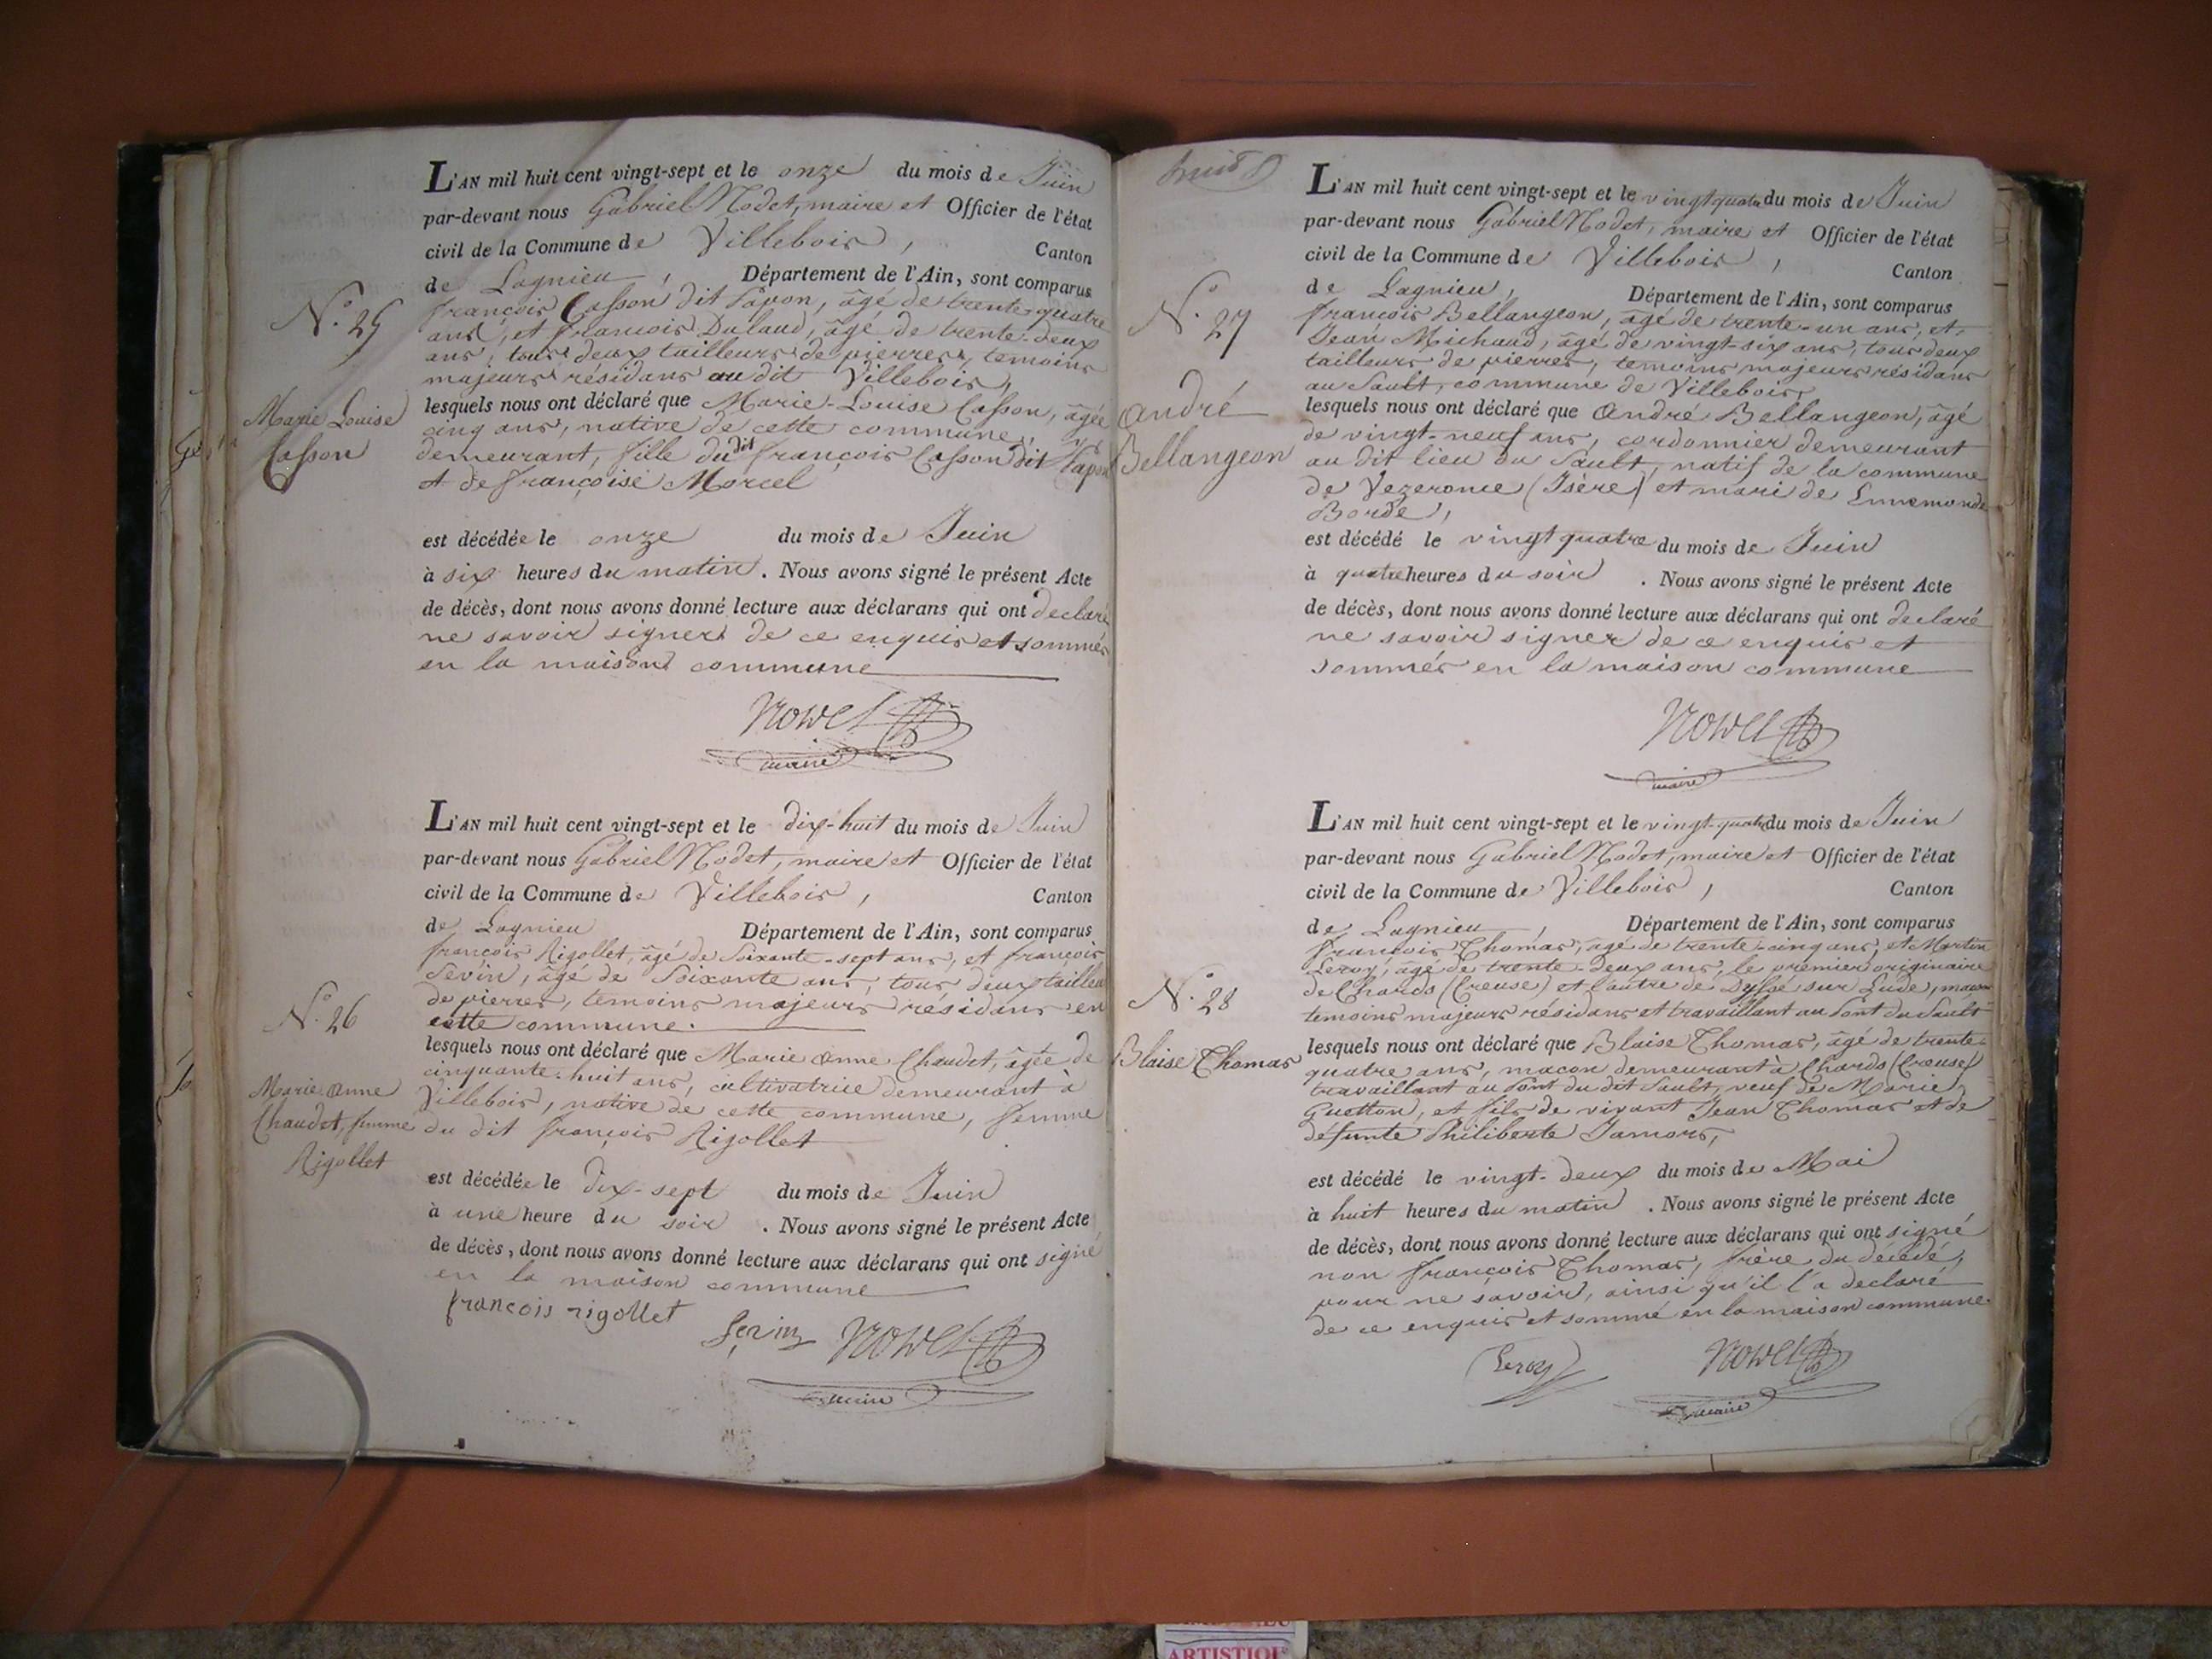 L'AN mil huit cent vingt-sept et le onze du mois de Juin
par-devant nous Gabriel Nodet, maire et Officier de l'état
civil de la Commune de Villebois, Canton
de Lagnieu, Département de l'Ain, sont comparus
N.º 25
françois Casson dit Papon, âgé de trente-quatre
ans, et françois Dulaud, âgé de trente-deux
ans, tous deux tailleurs de pierres, temoins
majeurs résidans au dit Villebois,
Marie Louise
Casson
lesquels nous ont déclaré que Marie-Louise Casson, âgée
cinq ans, native de cette commune, y
demeurant, fille du dit françois Casson dit Papon
et de françoise Morcel
est décédée le onze du mois de Juin
à six heures du matin. Nous avons signé le présent Acte
de décès, dont nous avons donné lecture aux déclarans qui ont declaré
ne savoir signer de ce enquis et sommés
en la maison commune
maire
L'AN mil huit cent vingt-sept et le dix-huit du mois de Juin
par-devant nous Gabriel Nodet, maire et Officier de l'état
civil de la Commune de Villebois, Canton
de Lagnieu Département de l'Ain, sont comparus
françois Rigollet, âgé de Soixante-sept ans, et françois
Sevin, âgé de Soixante ans, tous deux tailleu
de pierres, temoins majeurs résidans en
cette commune.
N.º 26
Marie anne
Chaudet, femme
Rigollet
lesquels nous ont déclaré que Marie anne Chaudet, âgée de
cinquante-huit ans, cultivatrice demeurant à
Villebois, native de cette commune, femme
du dit françois Rigollet
est décédée le dix-sept du mois de Juin
à une heure du soir. Nous avons signé le présent Acte
de décès, dont nous avons donné lecture aux déclarans qui ont signé
en la maison commune
françois rigollet
maire
huit
L'AN mil huit cent vingt-sept et le vingt quatre du mois de Juin
par-devant nous Gabriel Nodet, maire et Officier de l'état
civil de la Commune de Villebois, Canton
de Lagnieu, Département de l'Ain, sont comparus
N.º 27
françois Bellangeon, âgé de trente-un ans, et
Jean Michaud, âgé de vingt-six ans, tous deux
tailleurs de pierres, temoins majeurs résidans
au Sault, commune de Villebois,
André
Bellangeon
lesquels nous ont déclaré que André Bellangeon, âgé
de vingt-neuf ans, cordonnier demeurant
au dit lieu du Sault, natif de la commune
de Vezeronce (Isère) et mari de Ennemonde
Borde,
est décédé le vingt quatre du mois de Juin
à quatre heures du soir. Nous avons signé le présent Acte
de décès, dont nous avons donné lecture aux déclarans qui ont declaré
ne savoir signer de ce enquis et
sommés en la maison commune
maire
L'AN mil huit cent vingt-sept et le vingt-quatre du mois de Juin
par-devant nous Gabriel Nodet, maire et Officier de l'état
civil de la Commune de Villebois, Canton
de Lagnieu, Département de l'Ain, sont comparus
N.º 28
françois Thomas, âgé de trente-cinq ans, et Martin
Leroy, âgé de trente-deux ans, le premier originaire
de Chards (Creuse) et l'autre de sur Lude,
temoins majeurs résidans et travaillant au Pont du Sault
Blaise Thomas
lesquels nous ont déclaré que Blaise Thomas, âgé de trente-
quatre ans, maçon demeurant à Chards (Creuse)
travaillant au Pont du dit Sault, veuf de Marie
Guetton, et fils de vivant Jean Thomas et de
défunte Philiberte Jamois,
est décédé le vingt-deux du mois de Mai
à huit heures du matin. Nous avons signé le présent Acte
de décès, dont nous avons donné lecture aux déclarans qui ont signé
non françois Thomas, frère du décédé,
pour ne savoir, ainsi qu'il l'a declaré
de ce enquis et sommé en la maison commune.
Leroy
maire
ARTISTIQU